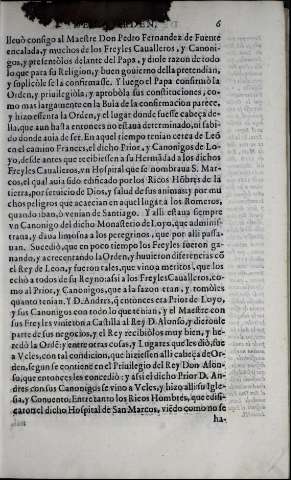 ORDEN, 6
lleuò consigo al Maestre Don Pedro Fernandez de Fuente
encalada, y muchos de los Freyles Caualleros, y Canoni-
gos, y presentòlos delante del Papa, y diole razon de todo
lo que para su Religion, y buen gouierno della pretendian,
y suplicòle se la confirmasse. Y luego el Papa confirmò la
Orden, y priuilegiòla, y aprobòla sus constituciones, co-
mo mas largamente en la Bula de la confirmacion parece,
y hizo essenta la Orden, y el lugar donde fuesse cabeça de-
lla, que aun hasta entonces no estaua determinado, ni sabi-
do donde auia de ser. En aquel tiempo tenian cerca de Leõ
en el camino Frances, el dicho Prior, y Canonigos de Lo-
yo, desde antes que recibiessen a su Hermãdad a los dichos
Freyles Caualleros, vn Hospital que se nombraua S. Mar-
cos, el qual auia sido edificado por los Ricos Hõbres de la
tierra, por seruicio de Dios, y salud de sus animas: y por mu
chos peligros que acaecian en aquel lugar a los Romeros,
quando iban, ò venian de Santiago. Y alli estaua siempre
vn Canonigo del dicho Monasterio de Loyo, que adminis-
traua, y daua limosna a los peregrinos, que por alli passa-
uan. Sucediò, que en poco tiempo los Freyles fueron ga-
nando, y acrecentando la Orden, y huuieron diferencias cõ
el Rey de Leon, y fueron tales, que vino a meritos, que los
echò a todos de su Reyno: assi a los Freyles Caualleros, co-
mo al Prior, y Canonigos, que a la sazon eran, y tomòles
quanto tenian. Y D. Andres, q̃ entonces era Prior de Loyo,
y sus Canonigos con todo lo que tenian, y el Maestre con
sus Freyles vinieron a Castilla al Rey D. Alonso, y dieronle
parte de sus negocios, y el Rey recibiòlos muy bien, y he-
redò la Ordẽ: y entre otras cosas, y Lugares que les diò, fue
a Veles, con tal condicion, que hiziessen alli cabeça de Or-
den, segun se contiene en el Priuilegio del Rey Don Alon-
so, que entonces les concediò: y assi el dicho Prior D. An-
dres con sus Canonigos se vino a Veles, y hizo alli su Igle-
sia, y Conuento. Entretanto los Ricos Hombres, que edifi-
caron el dicho Hospital de San Marcos, viẽdo como no se
ha-